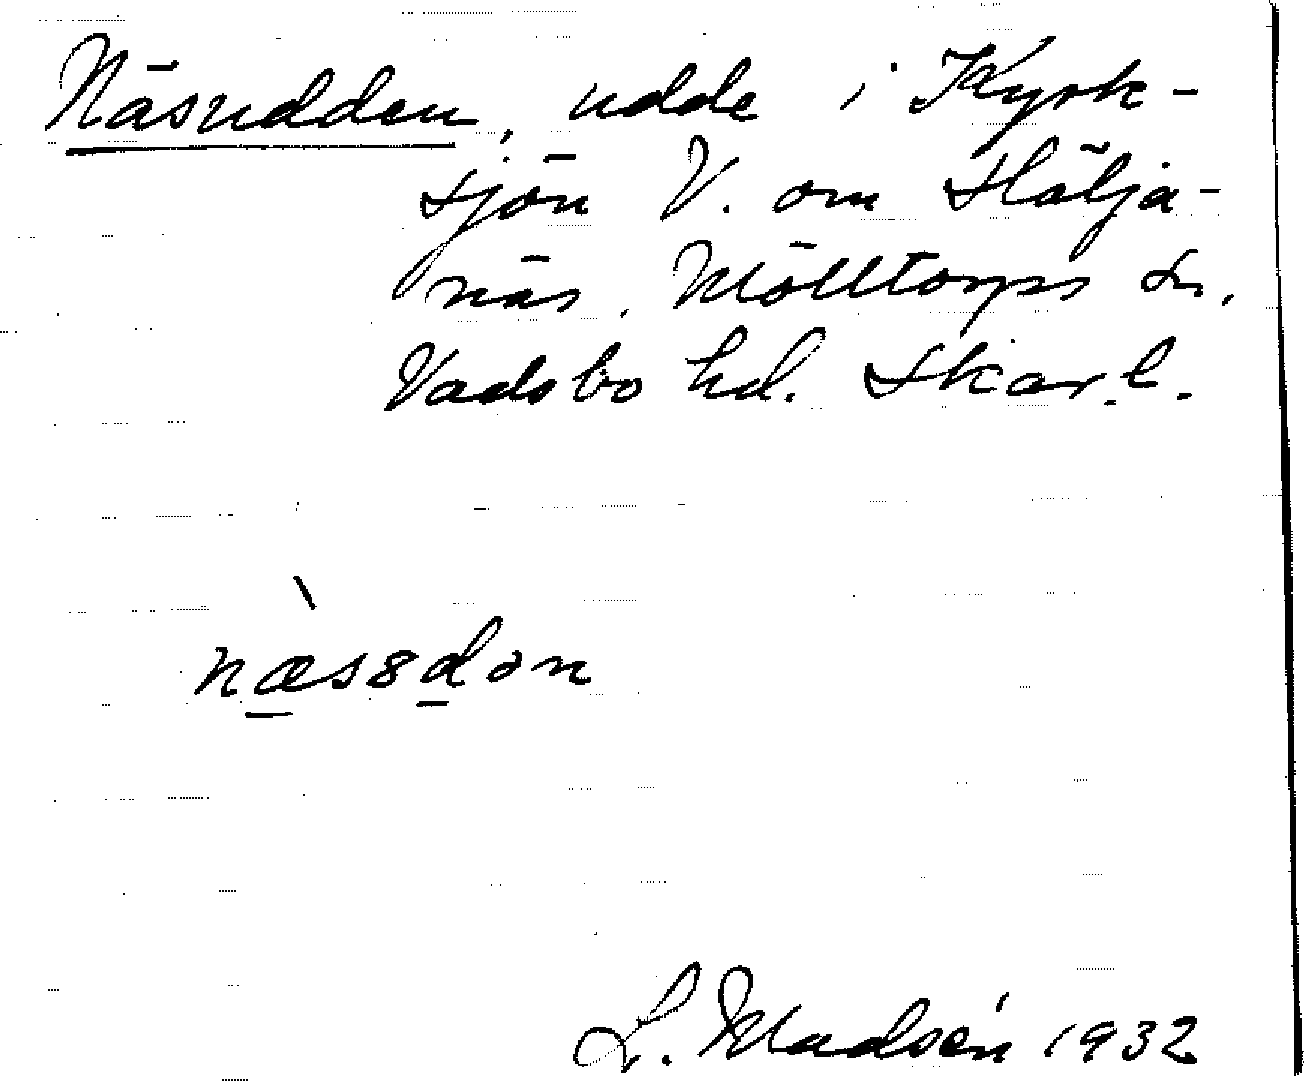 Näsudden, udde i Kyrk-
sjön V. om Hälja-
näs, Mölltorps sn,
Vadsbo hd. Skar. l.
næssdən
L. Madsén 1932